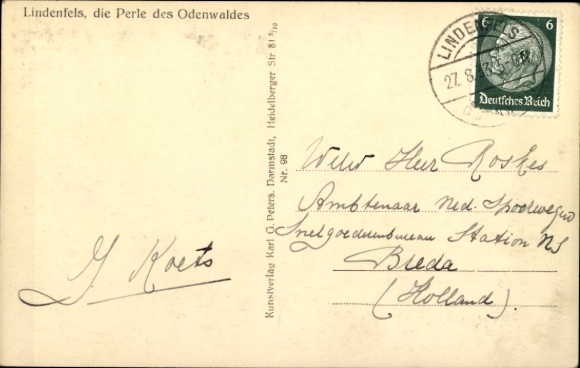 Lindenfels, die Perle des Odenwaldes
6 6
Deutsches Reich
LINDENFELS
27.8.
Kunstverlag Karl G. Peters, Darmstadt, Heidelberger Str 81 3/10
Nr. 98
Heer Roskes
Ambtenaar Ned. Spoorwegen
Snelgoederenbureau Station NS
Breda
(Holland).
J. Koets